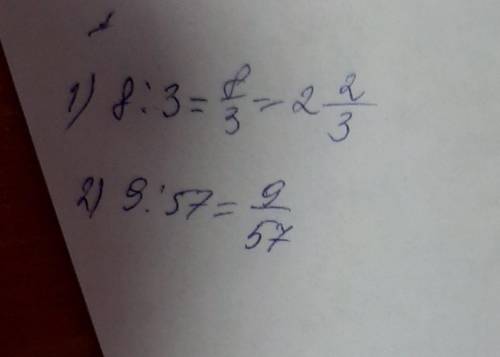 1) 8:3=8/3=2 2/3
2) 9:57=9/57